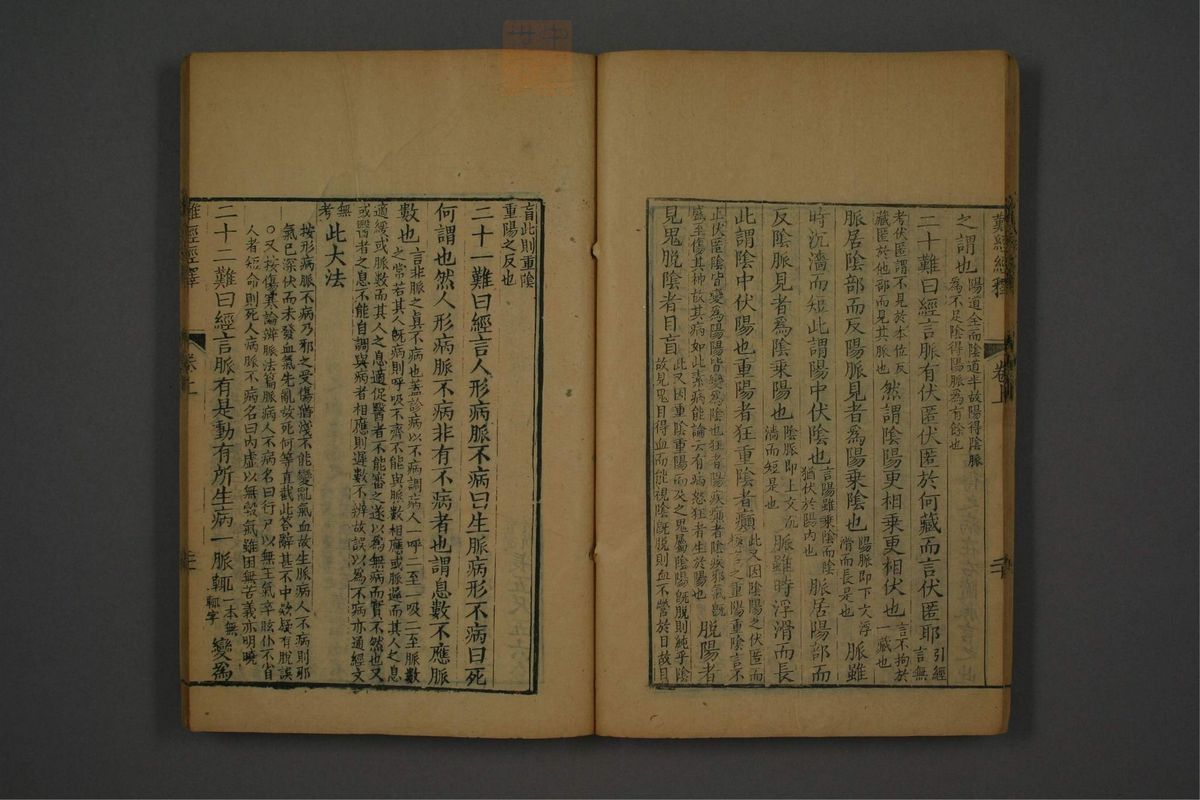 難經經釋
卷上
之謂也陽道全而陰道半故陽得陰脈
為不足陰得陽脈為有餘也
二十難曰經言脈有伏匿伏匿於何藏而言伏匿耶引經
言無
考伏匿謂不見於本位反
藏匿於他部而見其脈也然謂陰陽更相乘更相伏也言不拘於
一藏也
脈居陰部而反陽脈見者爲陽乘陰也陽脈即下文浮
滑而長是也脈雖
時沉濇而短此謂陽中伏陰也言陽雖乘陰而陰
猶伏於陽內也脈居陽部而
反陰脈見者爲陰乘陽也陰脈即上文沉
濇而短是也脈雖時浮滑而長
此謂陰中伏陽也重陽者狂重陰者癲此又因陰陽之伏匿而
極言之重陽重陰言不
止伏匿陰皆變爲陽陽皆變爲陰也狂者陽疾癲者陰疾邪氣旣
盛至傷其神故其病如此素病能論云有病怒狂者生於陽也脫陽者
見鬼脫陰者目盲此又因重陰重陽而及之鬼屬陰陽旣脫則純乎陰
故見鬼目得血而能視陰旣脫則血不營於目故目
盲此則重陰
重陽之反也
二十一難曰經言人形病脈不病曰生脈病形不病曰死
何謂也然人形病脈不病非有不病者也謂息數不應脈
數也言非脈之真不病也蓋診病以不病調病人一呼二至一吸二至脈數
之常若其人旣病則呼吸不齊不能與脈數相應或脈遲而其人之息
適緩或脈數而其人之息適促醫者不能審之遂以爲無病而實不然也又
或醫者之息不能自調與病者相應則遲數不辨故誤以爲不病亦通經文
無
考此大法
按形病脈不病乃邪之受傷猶淺不能變亂氣血故生脈病人不病則邪
氣已深伏而未發血氣先亂故死何等直截此答辭甚不中欵疑有脫誤
〇又按傷寒論辨脈法篇脈病人不病名曰行尸以無王氣卒眩仆不省
人者短命則死人病脈不病名曰內虛以無穀氣雖困無苦義亦明曉
二十二難曰經言脈有是動有所生病一脈輒一本無
輒字變爲
難經經釋
卷上